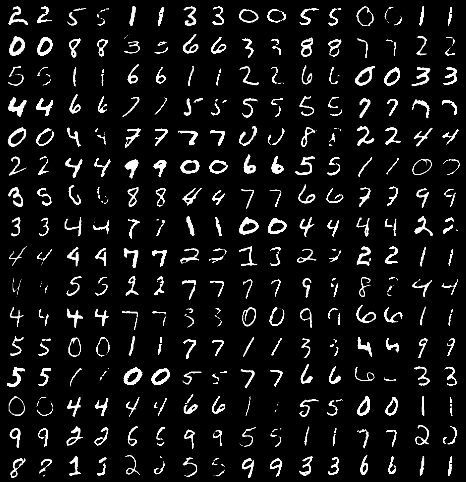 2 2 5 5 1 1 3 3 0 0 5 5 0 0 1 1
0 0 8 8 3 3 6 6 3 3 8 8 7 7 2 2
5 5 1 1 6 6 1 1 2 2 6 6 0 0 3 3
4 4 6 6 7 7 5 5 5 5 5 5 7 7 7 7
0 0 4 4 7 7 7 7 0 0 8 8 2 2 4 4
2 2 4 4 9 9 0 0 6 6 5 5 1 1 0 0
3 5 6 6 8 8 4 4 7 7 6 6 7 7 9 9
3 3 4 4 7 7 1 1 0 0 4 4 4 4 2 2
4 4 4 4 7 7 2 2 1 3 2 2 2 2 1 1
4 4 5 5 2 2 7 7 7 7 9 9 8 8 4 4
4 4 4 4 7 7 3 3 0 0 9 9 6 6 1 1
5 5 0 0 1 1 7 7 1 1 3 3 4 4 9 9
5 5 1 1 0 0 5 5 7 7 6 6 6 3 3
0 0 4 4 4 4 6 6 1 5 5 0 0 1 1
9 9 2 2 6 6 9 9 5 5 1 1 7 7 2 2
8 8 1 3 2 2 5 5 9 9 3 3 6 6 1 1